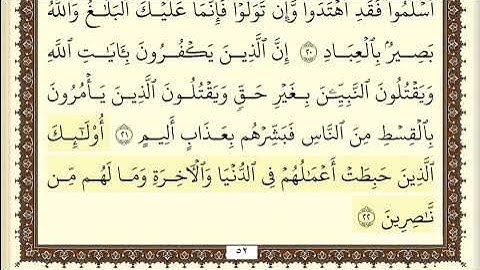 أَسْلَمُوا۟ فَقَدِ ٱهْتَدَوا۟ وَّإِن تَوَلَّوْا۟ فَإِنَّمَا عَلَيْكَ ٱلْبَلَٰغُ وَٱللَّهُ
بَصِيرٌۢ بِٱلْعِبَادِ ٢٠ إِنَّ ٱلَّذِينَ يَكْفُرُونَ بِـَٔايَٰتِ ٱللَّهِ
وَيَقْتُلُونَ ٱلنَّبِيِّـۧنَ بِغَيْرِ حَقٍّ وَيَقْتُلُونَ ٱلَّذِينَ يَأْمُرُونَ
بِٱلْقِسْطِ مِنَ ٱلنَّاسِ فَبَشِّرْهُم بِعَذَابٍ أَلِيمٍ ٢١ أُو۟لَٰٓئِكَ
ٱلَّذِينَ حَبِطَتْ أَعْمَٰلُهُمْ فِى ٱلدُّنْيَا وَٱلْـَٔاخِرَةِ وَمَا لَهُم مِّن
نَّٰصِرِينَ ٢٢
٥٢